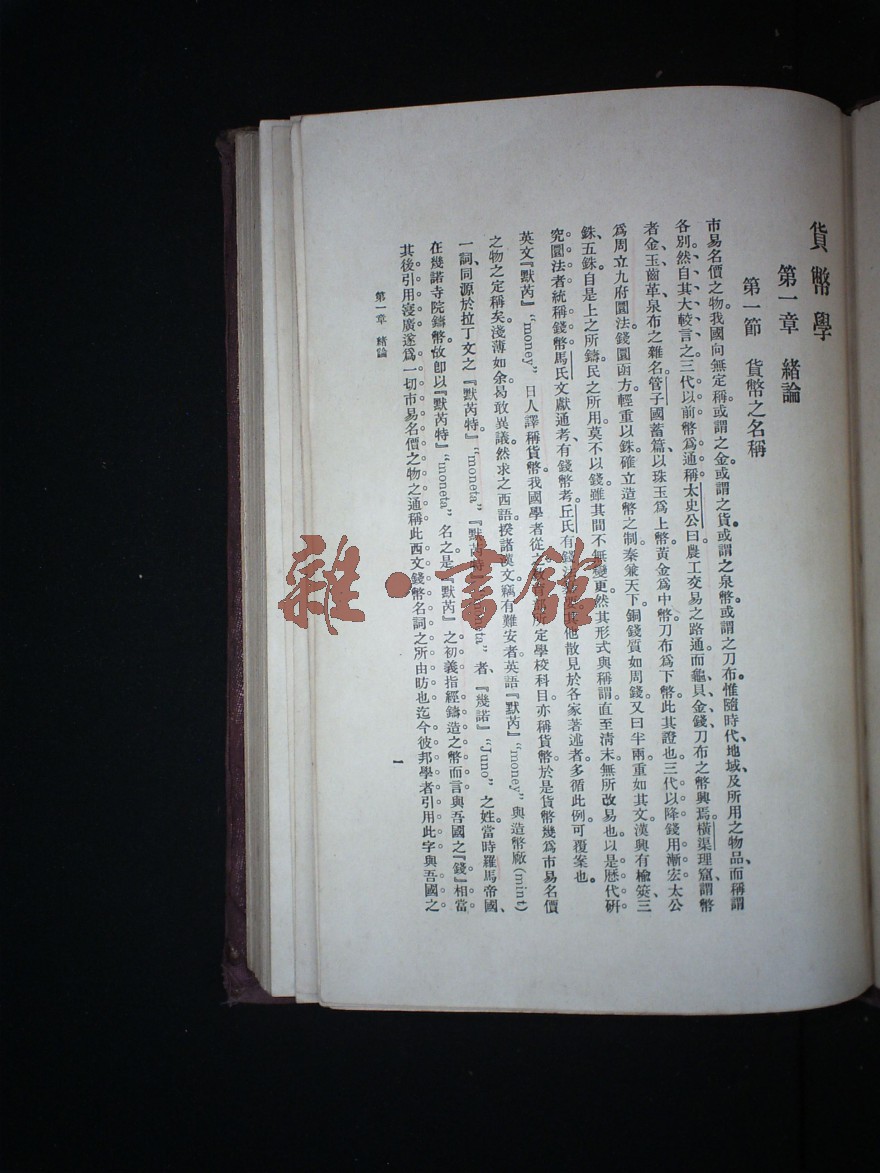 貨幣學
第一章　緒論
第一節　貨幣之名稱
市易名價之物。我國向無定稱。或謂之金。或謂之貨。或謂之泉幣。或謂之刀布。惟隨時代、地域、及所用之物品、而稱謂
各別。然自其大較言之。三代以前幣爲通稱。太史公曰。農工交易之路通。而龜、貝、金、錢、刀、布之幣興焉。橫渠理窟謂。幣
者、金、玉、齒、革、泉、布之雜名。管子國蓄篇以珠玉爲上幣。黃金爲中幣。刀布爲下幣。此其證也。三代以降錢用漸宏。太公
爲周立九府圜法。錢圜函方。輕重以銖。確立造幣之制。秦兼天下。銅錢質如周錢。又曰半兩。重如其文。漢興有楡莢、三
銖、五銖。自是上之所鑄。民之所用。莫不以錢。雖其間不無變更。然其形式與稱謂直至淸末。無所改易也。以是歷代硏
究圜法者。統稱錢幣。馬氏文獻通考、有錢幣考。丘氏有錢法。其他散見於各家著述者。多循此例。可覆案也。
英文『默芮』“money”日人譯稱貨幣。我國學者從之。所定學校科目。亦稱貨幣。於是貨幣幾爲市易名價
之物之定稱矣。淺薄如余。曷敢異議。然求之西語。揆諸漢文。竊有難安者。英語『默芮』“money”與造幣廠(mint)
一詞、同源於拉丁文之『默芮特』“moneta”『默芮特』者、『幾諾』“Juno”之姓。當時羅馬帝國、
在幾諾寺院鑄幣。故卽以『默芮特』“moneta”名之。是『默芮』之初義。指經鑄造之幣而言。與吾國之『錢』相當。
其後引用寖廣。遂爲一切市易名價之物之通稱。此西文錢幣名詞之所由昉也。迄今彼邦學者引用此字。與吾國之
第一章　緒論
一
雜·書館